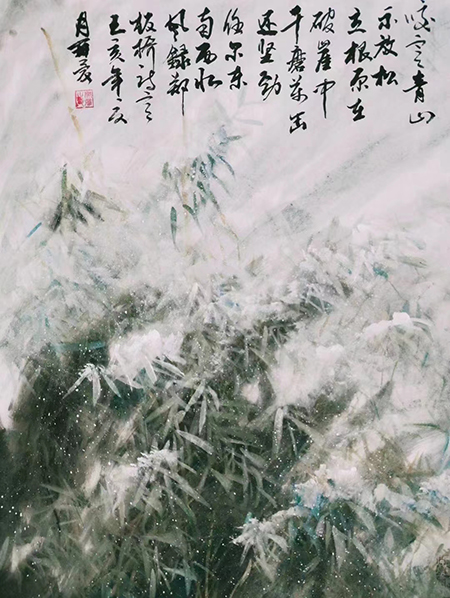 咬定青山
不放松
立根原在
破崖中
千磨萬击
还坚劲
任尔东
南西北
风録郑
板桥诗
亥年
月